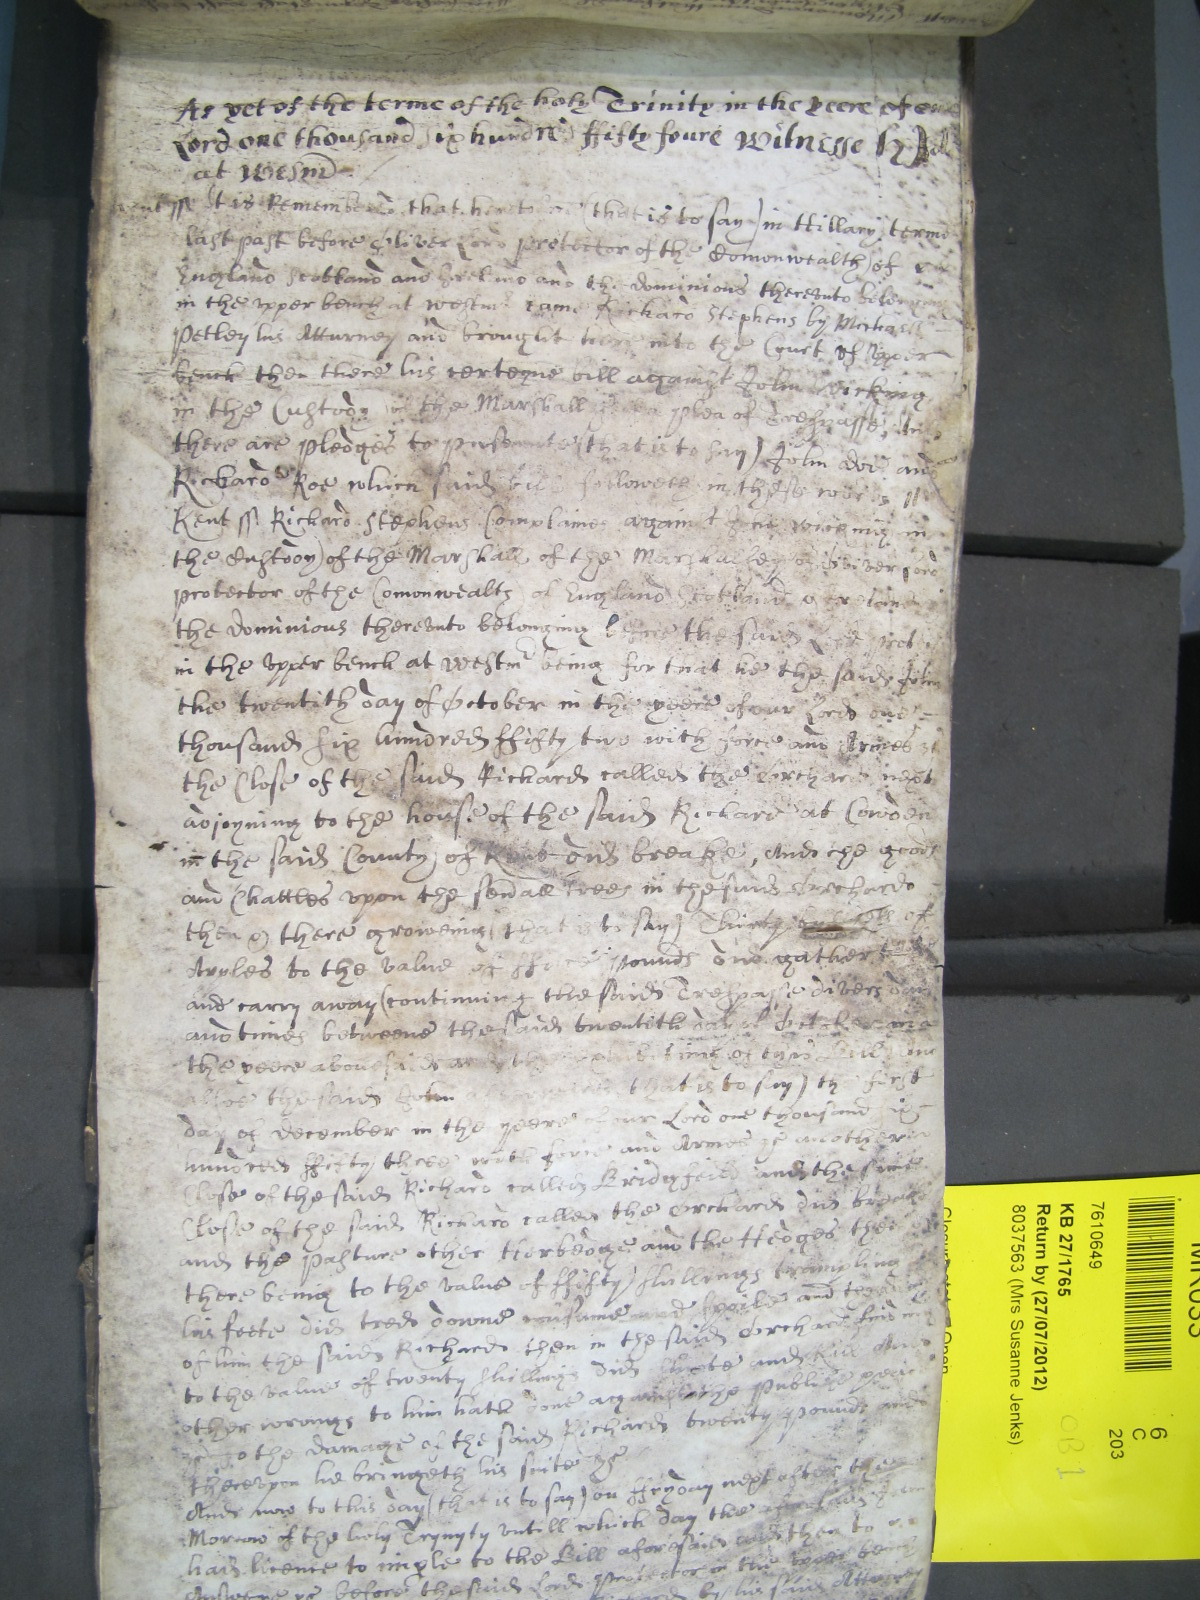 As yet of the terme of the holy Trinity in the yeere of our
Lord one thousand six hundred ffifty foure Witnesse H
at Westm
It is Remembred that heretofore (that is to say) in Hillary terme
last past before Oliver Lord protector of the Comonwealth of
England Scotland and Ireland and the dominions thereunto belonging
in the upper bench at Westm came Richard Stephens by Michaell
Petley his Atturney and brought here into the Court of Upper
bench then there his certeyne bill against John Wicking
in the Custody of the Marshall of a plea of Trespasse, And
there are pledges to prosecute (that is to say) John doe and
Richard Roe which said bill followeth in these words ss
Kent ss Richard Stephens Complaines against John Wicking in
the Custody of the Marshall of the Marshallsey of Oliver Lord
protector of the Comonwealth of England Scotland & Ireland
the dominions thereunto belonging before the said Lord prot
in the upper bench at Westm being for that he the said John
the twentith day of October in the yeere of our Lord one
thousand six hundred ffifty two with force and Armes
the Close of the said Richard called the Orchard next
adjoyning to the house of the said Richard at Cowden
in the said County of Kent did breake, And the goods
and Chattles upon the severall trees in the said Orchard
then & there groweing (that is to say) Thirty of
Apples to the value of pounds did gather
and carry away (continuing the said Trespasse divers daies
and times betweene the said twentith day of October in
the yeere abovesaid and the time of this Bill and
alsoe the said John afterwards that is to say) the first
day of December in the yeere of our Lord one thousand six
hundred ffifty three with force and Armes another
Close of the said Richard called Bridgfeild and the said
Close of the said Richard called the Orchard did breake
and the pasture other Herbedge and the Hedges then
there being to the value of ffifty shillings trampling
his feete did tredd downe consume and spoile and
of him the said Richard then in the said Orchard
to the value of twenty shillings did and kill And
other wrongs to him hath done against the publique peace
to the damage of the said Richard twenty pounds and
thereupon he bringeth his suite &c
And now to this day (that is to say) on ffryday next after the
Morrow of the holy Trynyty untill which day the aforesaid John
had licence to imple to the Bill aforesaid and then to
Answere &c before the said Lord Protector in the upper bench
by his said Atturney
7610649
KB 27/1765
Return by (27/07/2012)
8037563 (Mrs Susanne Jenks)
6
C
203
OB 1